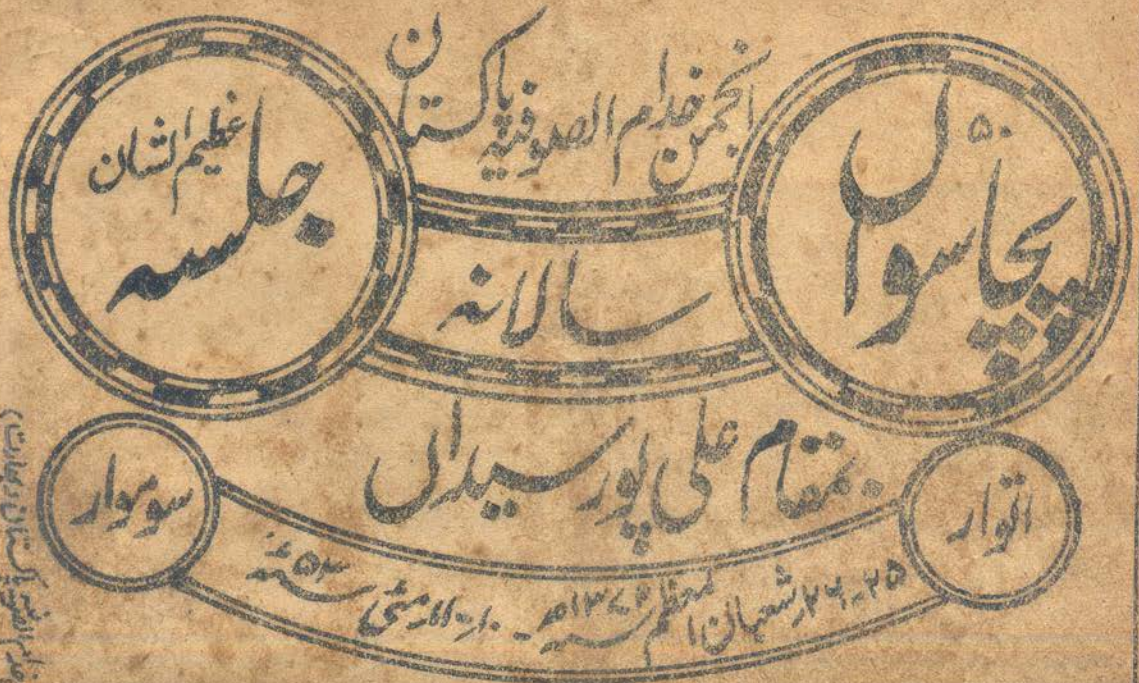 انجمن خدام الصوفیہ پاکستان
۵۰
پچاسواں
سالانہ
عظیم الشان
جلسہ
بمقام علی پور سیداں
اتوار
سوموار
۲۵-۲۶ شعبان المعظم سنہ ۱۳۷۲ھ - ۱۰-۱۱ مئی سنہ ۵۳ء